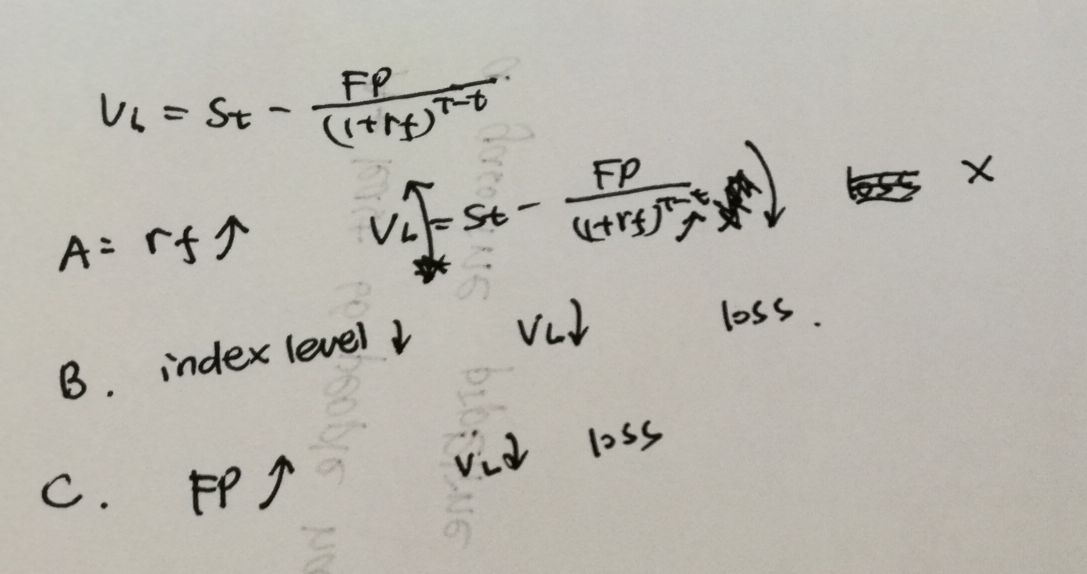 VL = St - FP/(1+rf)^T-t
A: rf↑ VL↑ = St - FP/(1+rf)^T-t↑ ↓ loss ×
B. index level ↓ VL↓ loss.
C. FP ↑ VL↓ loss